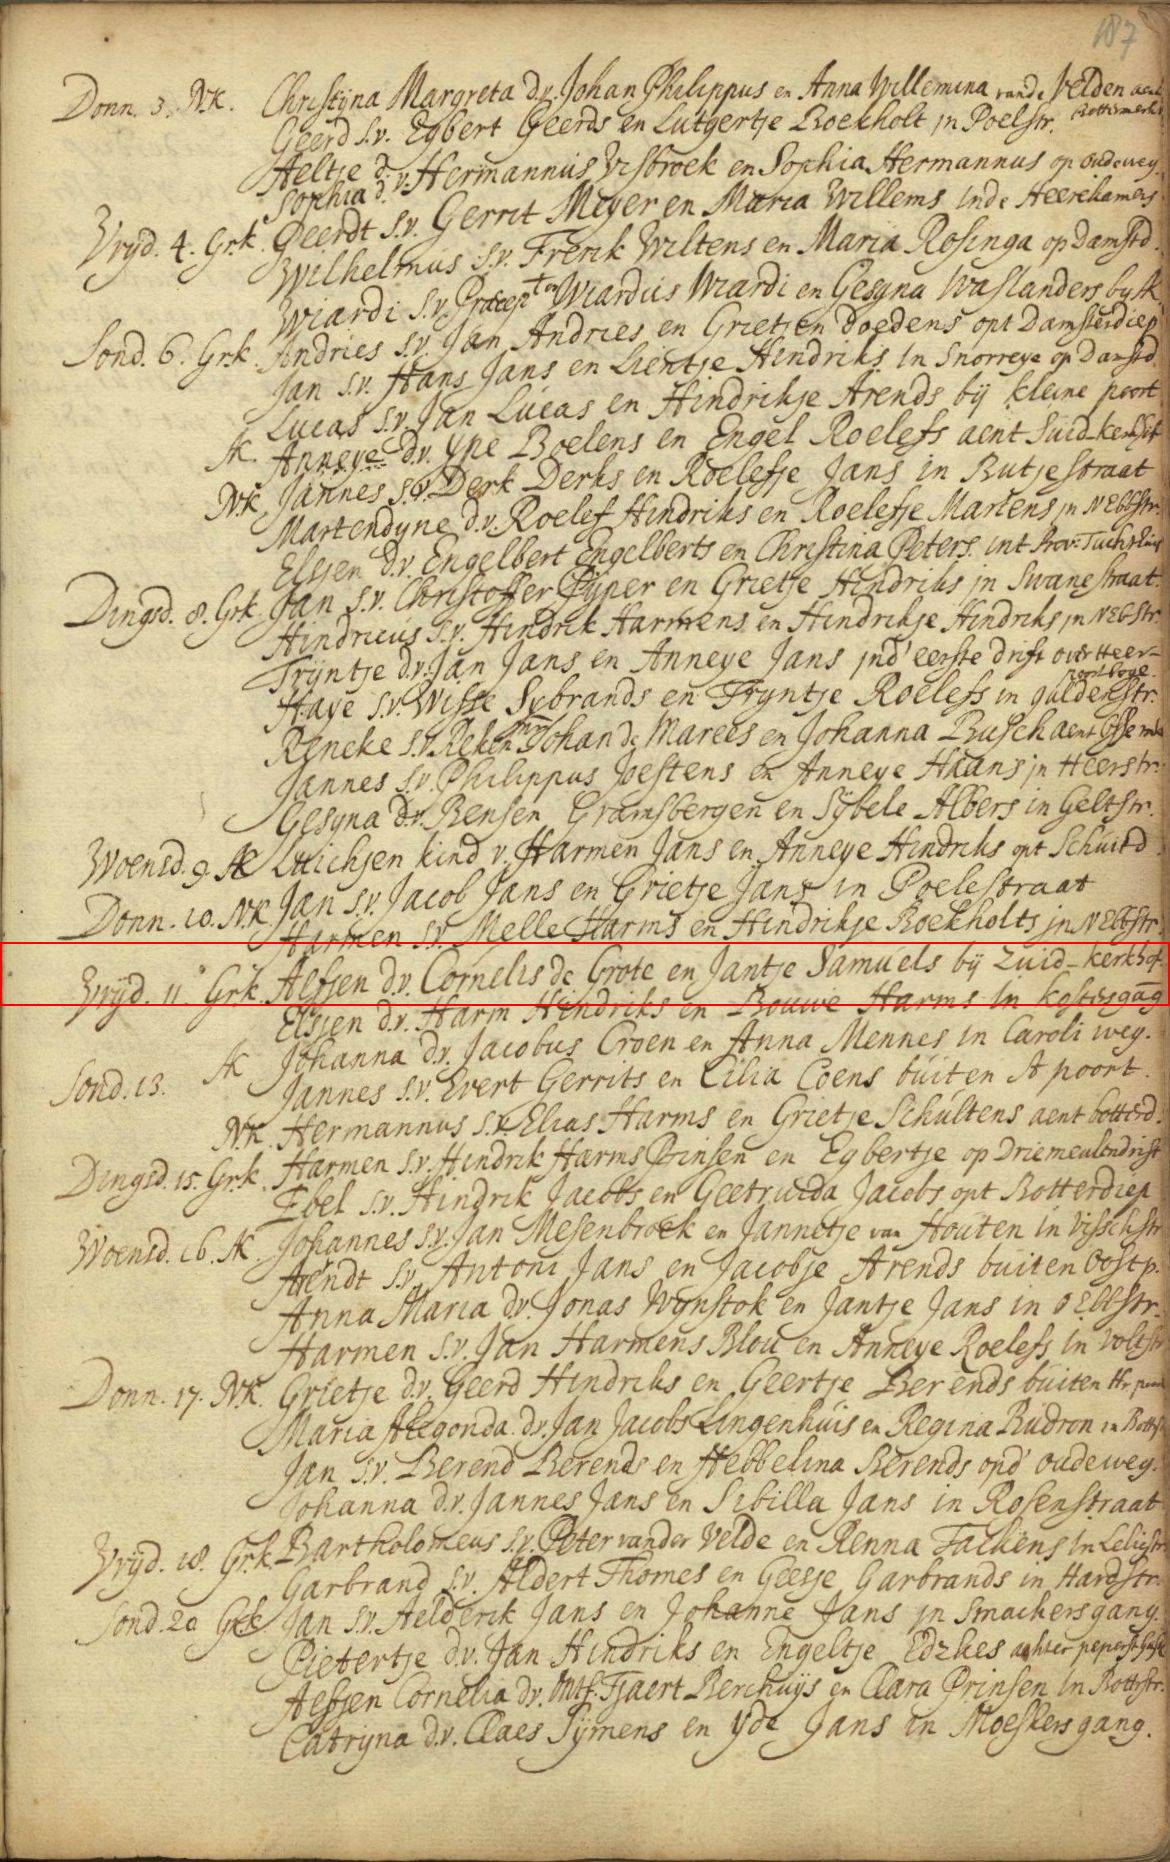 187
Donn. 3. NK. Christijna Margreta d.v. Johan Philippus en Anna Willemina vande Velden aent
Bottermerkt
Geerd s.v. Egbert Geerds en Lutgertje Boekholt in Poelstr.
Aeltje d.
Sophia d. v. Hermannus Visbroek en Sophia Hermannus op oudeweg
Vrijd. 4. Grk. Geerdt s.v. Gerrit Meyer en Maria Willems inde Heerekamers
Wilhelmus s.v. Frerik Wiltens en Maria Rosinga op Damstd.
Wiardi s.v. Wiardus Wiardi en Gesyna Waslanders by
Sond. 6. Grk. Andries s.v. Jan Andries en Grietjen Doedens opt Damsterdiep
Jan s.v. Hans Jans en Lientje Hindriks in Snorreye op Damstd.
Lucas s.v. Jan Lucas en Hindrikje Arends bij kleine poort
AK. Anneye d.v. Ype Boelens en Engel Roelefs aent Suid-kerkhof
NK. Jannes s.v. Derk Derks en Roelefje Jans in Butjestraat
Martendyne d.v. Roelef Hindriks en Roelefje Martens in N Ebbstr.
Elsjen d.v. Engelbert Engelberts en Christina Peters int Prov. Tuchthuis
Dingsd. 8. Grk. Jan s.v. Christoffer Pyper en Grietje Hindriks in Swanestraat.
Hindricus s.v. Hindrik Harmens en Hindrikje Hindriks in N Ebstr.
Trijntje d.v. Jan Jans en Anneye Jans ind' eerste drift over Heer-
poort boge.
Haye s.v. Wisse Sybrands en Tryntje Roelefs in guldenstr.
Reneke s.v. Johan de Marees en Johanna Busch aent
Jannes s.v. Philippus Joestens en Anneye Haans in Heerstr.
Gesyna d.v. Bensen Gramsbergen en Sijbele Albers in Geltstr.
Woensd. 9. AK Luichjen kind v. Harmen Jans en Anneye Hindriks opt Schuitd
Donn. 10. NK Jan s.v. Jacob Jans en Grietje Jans in Poelestraat
Harmen s.v. Melle Harms en Hindrikje Boekholts in N Ebbstr.
Vrijd. 11. Grk. Aefjen d.v. Cornelis de Grote en Jantje Samuels bij Zuid-kerkhof.
Elsjen d.v. Harm Hindriks en Bouwe Harms in kostersgang
AK Johanna d.v. Jacobus Croen en Anna Mennes in Caroli weg.
Sond. 13. Jannes s.v. Evert Gerrits en Cilia Coens buiten A poort.
NK. Hermannus s.v. Elias Harms en Grietje Schultens aent botterd.
Dingsd. 15. Grk. Harmen s.v. Hindrik Harms Prinsen en Egbertje op Driemeulendrift
Ebel s.v. Hindrik Jacobs en Geetruida Jacobs opt Botterdiep
Woensd. 16. AK. Johannes s.v. Jan Mesenbroek en Jannetje van Houten in Visschstr
Arendt s.v. Antoni Jans en Jacobje Arends buiten Oostp.
Anna Maria d.v. Jonas Wynstok en Jantje Jans in O Ebbstr.
Harmen s.v. Jan Harmens Blou en Anneye Roelefs in Voltstr
Donn. 17. NK. Grietje d.v. Geerd Hindriks en Geertje Berends buiten Hr. poort
Maria Alegonda d.v. Jan Jacobs Lingenhuis en Regina Budron in Bottstr
Jan s.v. Berend Berends en Hebbelina Berends opd' oudeweg.
Johanna d.v. Jannes Jans en Sibilla Jans in Rosenstraat
Vrijd. 18. Grk. Bartholomeus s.v. Peter vander Velde en Renna Fackens in Leliestr
Garbrand s.v. Aldert Thomes en Geesje Garbrands in Hardstr.
Sond. 20 Grk Jan s.v. Aelderik Jans en Johanne Jans in Smackersgang.
Pietertje d.v. Jan Hindriks en Engeltje Edzkes achter
Aefjen Cornelia d.v. Tjaert Berchuijs en Clara Prinsen in Bottstr.
Catryna d.v. Claes Sijmens en Yde Jans in Moeskersgang.